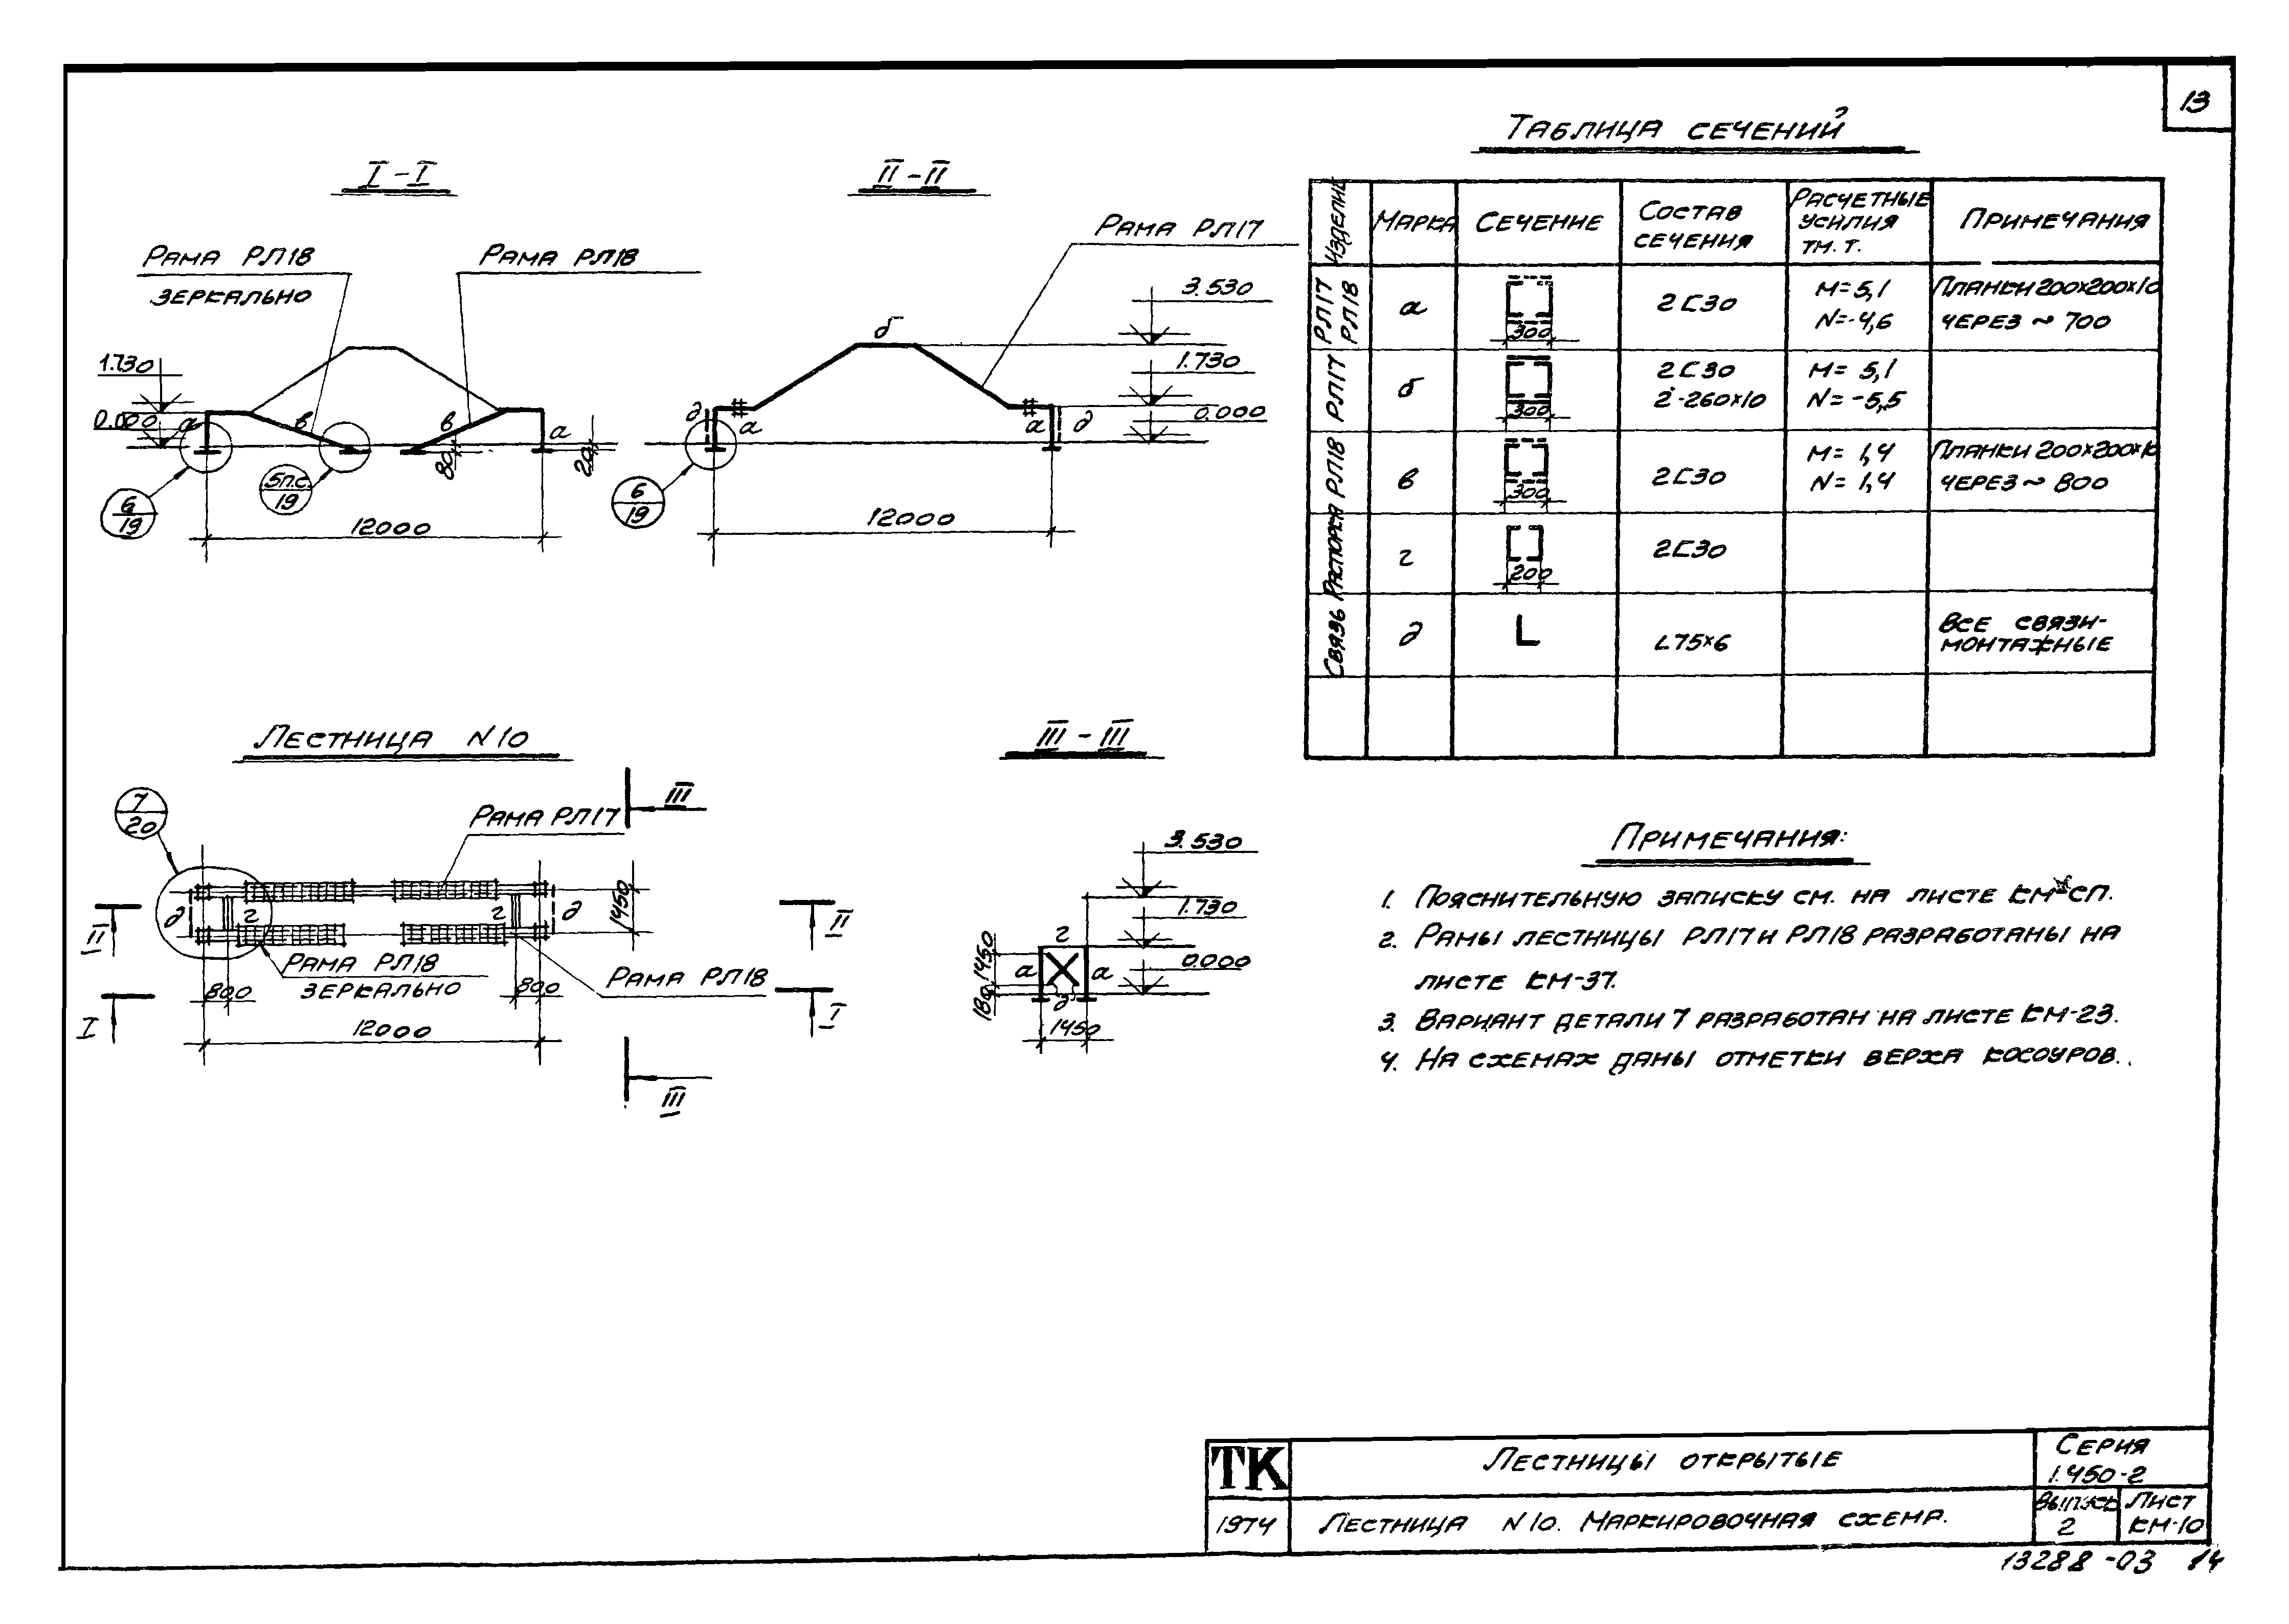 13
I-I
Рама РЛ18
зеркально
Рама РЛ18
1.730
0.000
а
в
в
а
80
20
6
19
5п.с.
19
12000
II-II
Рама РЛ17
3.530
1.730
0.000
б
д
а
а
д
6
19
12000
Таблица сечений
Изделие
Марка
Сечение
Состав
сечения
Расчетные
усилия
тм. т.
Примечания
РЛ17
РЛ18
а
300
2С30
М=5,1
N=-4,6
Планки 200х200х10
через ~ 700
РЛ17
б
300
2С30
2-260х10
М= 5,1
N= -5,5
РЛ18
в
300
2С30
М= 1,4
N= 1,4
Планки 200х200х10
через ~ 800
Распорка
г
200
2С30
Связь
д
L75х6
Все связи-
монтажные
Лестница N10
7
20
Рама РЛ17
III
д
г
г
д
1450
II
II
Рама РЛ18
зеркально
Рама РЛ18
800
800
I
I
12000
III
III-III
3.530
1.730
0.000
г
а
а
д
1450
180
1450
Примечания:
1. Пояснительную записку см. на листе КМ-СП.
2. Рамы лестницы РЛ17 и РЛ18 разработаны на
листе КМ-37.
3. Вариант детали 7 разработан на листе КМ-23.
4. На схемах даны отметки верха косоуров.
ТК
Лестницы открытые
Серия
1.450-2
1974
Лестница N10. Маркировочная схема.
Выпуск
2
Лист
КМ-10
13288-03 14